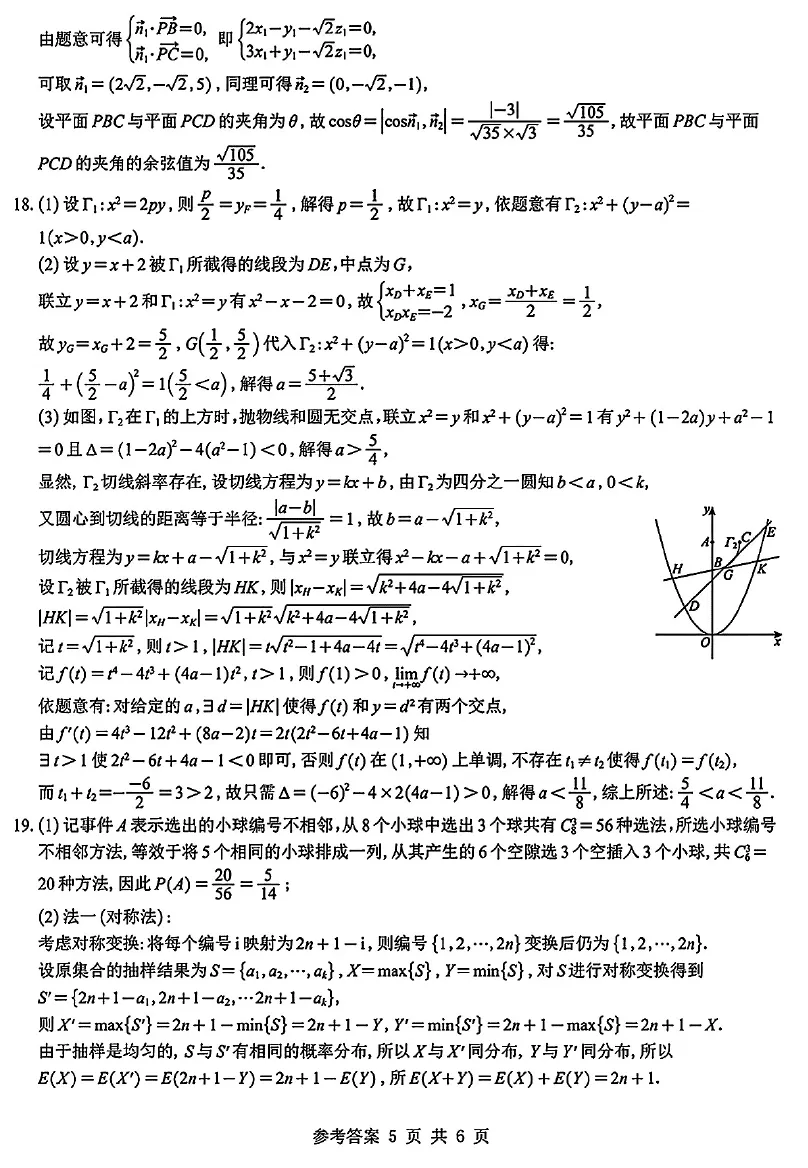 由题意可得{n⃗₁·PB⃗=0, n⃗₁·PC⃗=0, 即{2x₁-y₁-√2z₁=0, 3x₁+y₁-√2z₁=0,
可取n⃗₁=(2√2,-√2,5),同理可得n⃗₂=(0,-√2,-1),
设平面PBC与平面PCD的夹角为θ,故cosθ=|cosn⃗₁,n⃗₂|=|-3|/(√35×√3)=√105/35,故平面PBC与平面
PCD的夹角的余弦值为√105/35.
18.(1)设Γ₁:x²=2py,则p/2=y_F=1/4,解得p=1/2,故Γ₁:x²=y,依题意有Γ₂:x²+(y-a)²=
1(x>0,y<a).
(2)设y=x+2被Γ₁所截得的线段为DE,中点为G,
联立y=x+2和Γ₁:x²=y有x²-x-2=0,故{x_D+x_E=1 x_Dx_E=-2,x_G=(x_D+x_E)/2=1/2,
故y_G=x_G+2=5/2,G(1/2,5/2)代入Γ₂:x²+(y-a)²=1(x>0,y<a)得:
1/4+(5/2-a)²=1(5/2<a),解得a=(5+√3)/2.
(3)如图,Γ₂在Γ₁的上方时,抛物线和圆无交点,联立x²=y和x²+(y-a)²=1有y²+(1-2a)y+a²-1
=0且Δ=(1-2a)²-4(a²-1)<0,解得a>5/4,
显然,Γ₂切线斜率存在,设切线方程为y=kx+b,由Γ₂为四分之一圆知b<a,0<k,
又圆心到切线的距离等于半径:|a-b|/√(1+k²)=1,故b=a-√(1+k²),
切线方程为y=kx+a-√(1+k²),与x²=y联立得x²-kx-a+√(1+k²)=0,
设Γ₂被Γ₁所截得的线段为HK,则|x_H-x_K|=√(k²+4a-4√(1+k²)),
|HK|=√(1+k²)|x_H-x_K|=√(1+k²)√(k²+4a-4√(1+k²)),
记t=√(1+k²),则t>1,|HK|=t√(t²-1+4a-4t)=√(t⁴-4t³+(4a-1)²),
记f(t)=t⁴-4t³+(4a-1)t²,t>1,则f(1)>0,lim t→+∞ f(t)→+∞,
依题意有:对给定的a,∃d=|HK|使得f(t)和y=d²有两个交点,
由f′(t)=4t³-12t²+(8a-2)t=2t(2t²-6t+4a-1)知
∃t>1使2t²-6t+4a-1<0即可,否则f(t)在(1,+∞)上单调,不存在t₁≠t₂使得f(t₁)=f(t₂),
而t₁+t₂=-(-6)/2=3>2,故只需Δ=(-6)²-4×2(4a-1)>0,解得a<11/8,综上所述:5/4<a<11/8.
y
E
A
Γ₂
C
H
B
G
K
D
O
x
19.(1)记事件A表示选出的小球编号不相邻,从8个小球中选出3个球共有C₈³=56种选法,所选小球编号
不相邻方法,等效于将5个相同的小球排成一列,从其产生的6个空隙选3个空插入3个小球,共C₆³=
20种方法,因此P(A)=20/56=5/14;
(2)法一(对称法):
考虑对称变换:将每个编号i映射为2n+1-i,则编号{1,2,…,2n}变换后仍为{1,2,…,2n}.
设原集合的抽样结果为S={a₁,a₂,…,a_k},X=max{S},Y=min{S},对S进行对称变换得到
S′={2n+1-a₁,2n+1-a₂,…2n+1-a_k},
则X′=max{S′}=2n+1-min{S}=2n+1-Y,Y′=min{S′}=2n+1-max{S}=2n+1-X.
由于抽样是均匀的,S与S′有相同的概率分布,所以X与X′同分布,Y与Y′同分布,所以
E(X)=E(X′)=E(2n+1-Y)=2n+1-E(Y),所E(X+Y)=E(X)+E(Y)=2n+1.
参考答案 5 页 共 6 页